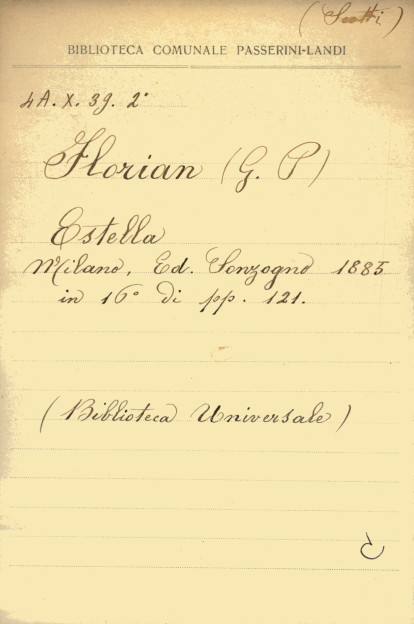 BIBLIOTECA COMUNALE PASSERINI-LANDI
4A. X. 39. 2°
Florian (G. P)
Estella
Milano, Ed. Sonzogno 1885
in 16° di pp. 121.
(Biblioteca Universale)